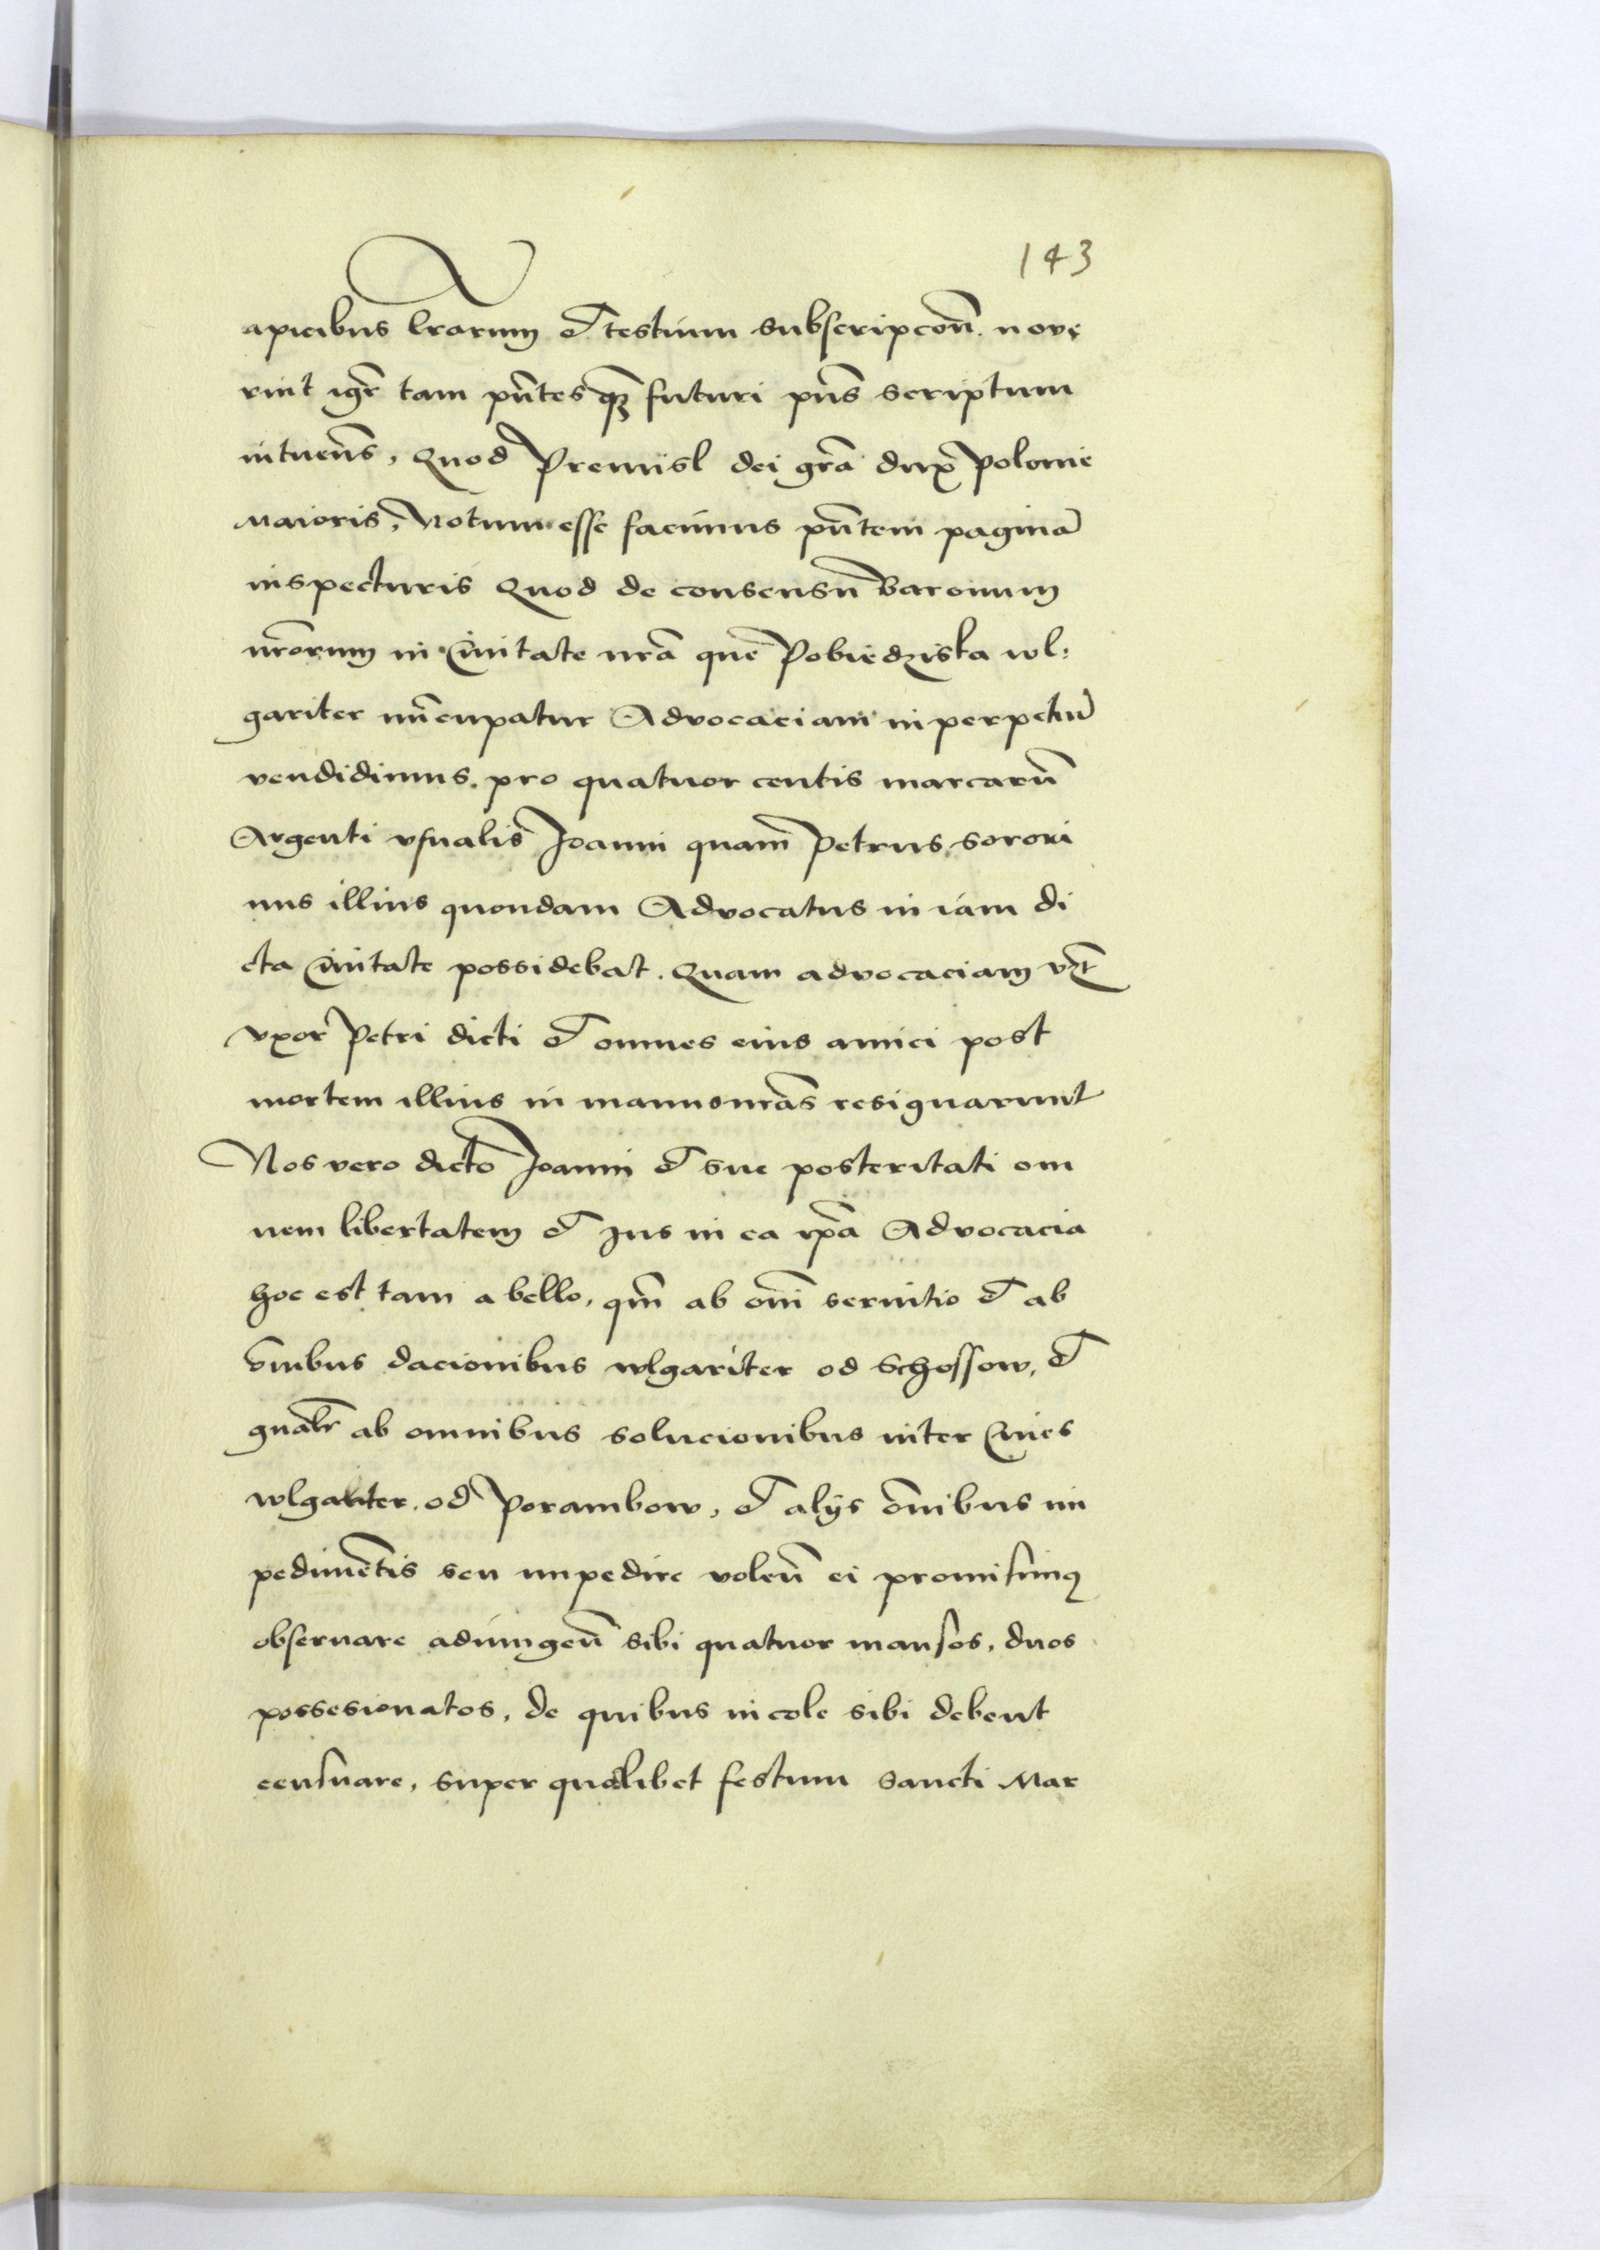 143
apicibus lrarum et testium subscripcoñ. nove
rint igr̃ tam pñtes qȝ futuri pñs scriptum
intueñs, Quod Premisl dei grã dux Polonie
Maioris, Notum esse facimus pñtem paginã
inspecturis Quod de consensu Baronum
nrõrum in Civitate nrã que Pobiedziska wl:
gariter nũcupatur Advocaciam in perpetuũ
vendidimus. pro quatuor centis marcarũ
Argenti vsualis Joanni quam Petrus sorori
nus illius quondam Advocatus in iam di
cta Civitate possidebat. Quam advocaciam vȝt
vxor Petri dicti et omnes eius amici post
mortem illius in manus nrãs resignarunt
Nos vero dicto Joanni et sue posteritati om
nem libertatem et Jus in ea ipã Advocacia
hoc est tam a bello, qm̃ ab om̃i servitio et ab
om̃ibus dacionibus wlgariter od Schossow, et
gnãlr ab omnibus solucionibus inter Cives
wlgariter. od Porambow, et alijs om̃ibus im
pedimẽtis seu impedire voleñ ei promisimꝰ
observare adiungeñ sibi quatuor mansos, duos
possesionatos, de quibus incole sibi debent
censuare, super quodlibet festum Sancti Mar